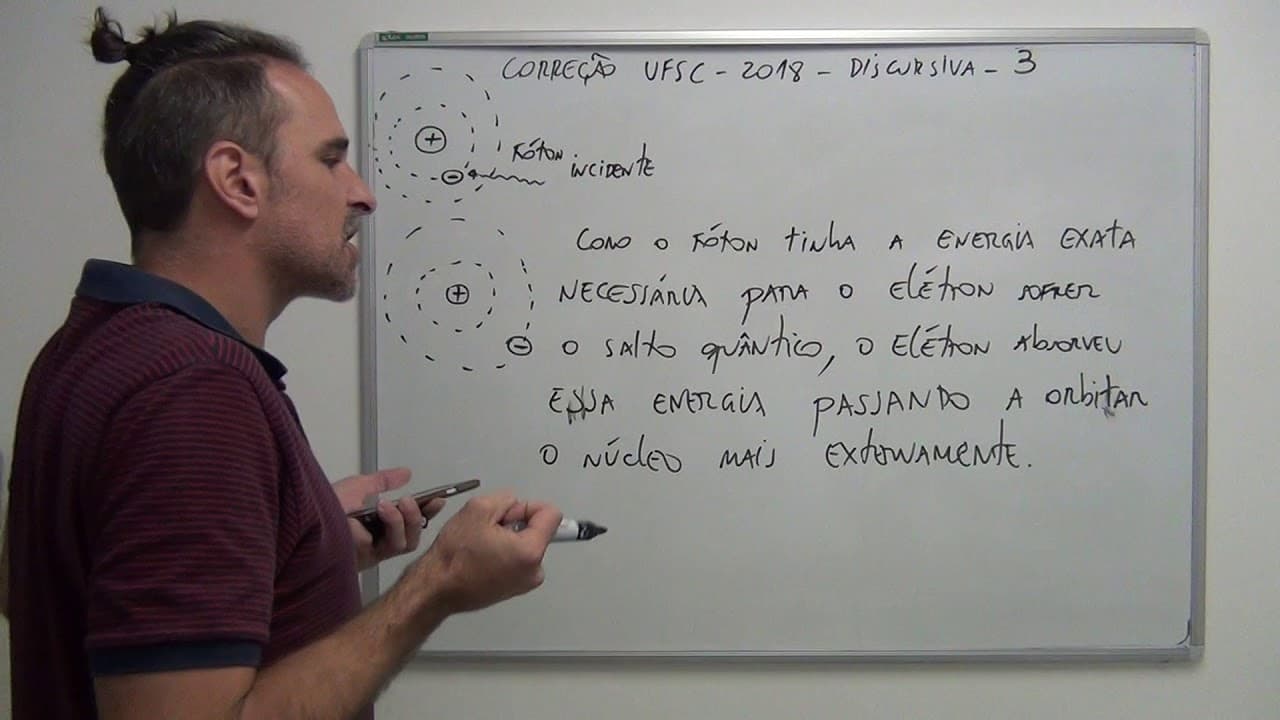 CORREÇÃO UFSC - 2018 - DISCURSIVA - 3
+
FÓTON INCIDENTE
-
COMO O FÓTON TINHA A ENERGIA EXATA
+
NECESSÁRIA PARA O ELÉTRON SOFRER
-
O SALTO QUÂNTICO, O ELÉTRON ABSORVEU
ESSA ENERGIA PASSANDO A ORBITAR
O NÚCLEO MAIS EXTERNAMENTE.